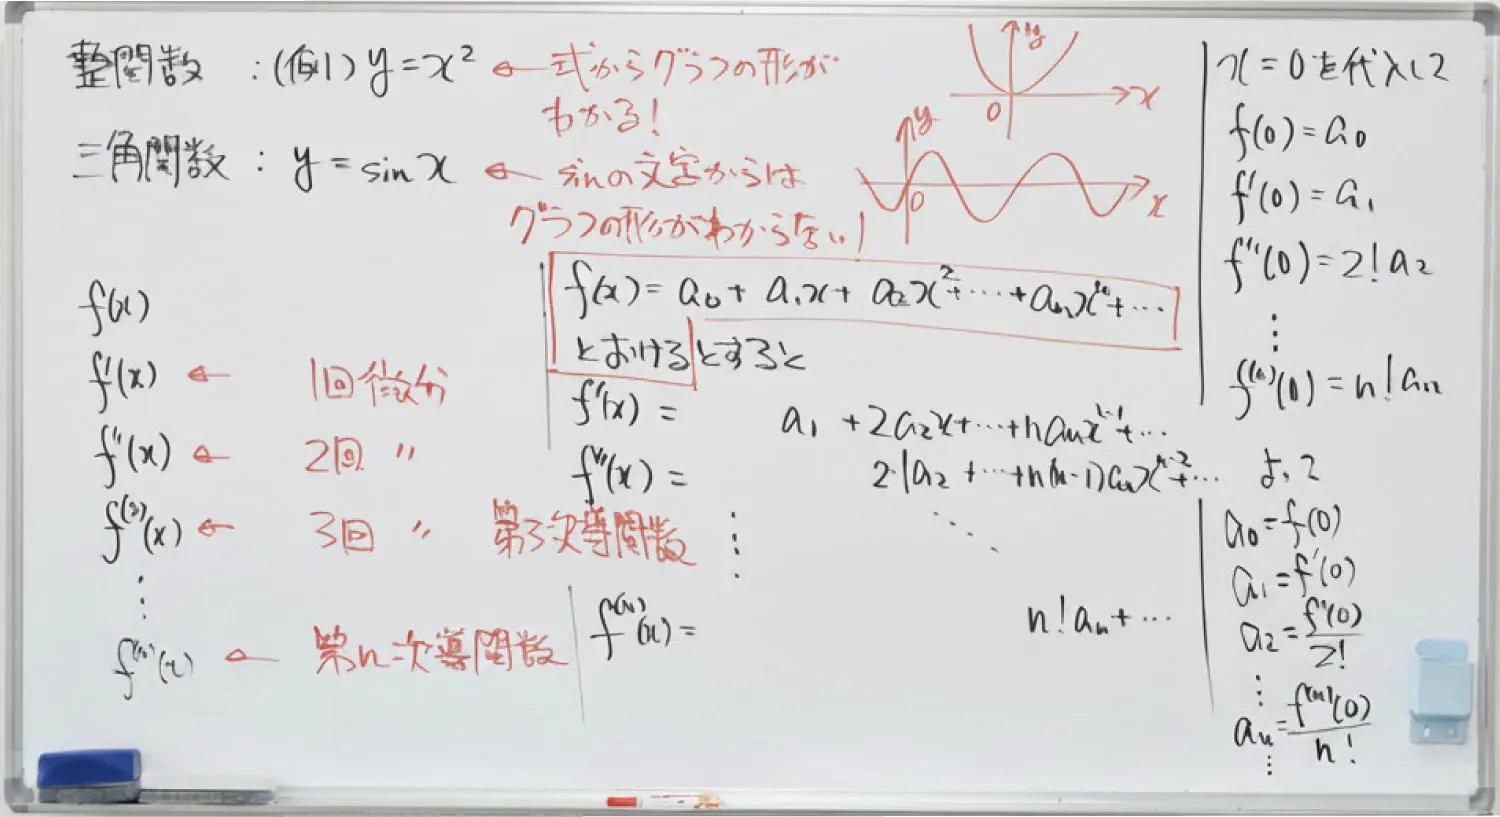 整関数 : (例1) y = x² ← 式からグラフの形が
わかる!
三角関数 : y = sin x ← sinの文字からは
グラフの形がわからない!
y
0
x
y
0
x
f(x)
f'(x) ← 1回微分
f''(x) ← 2回 〃
f⁽³⁾(x) ← 3回 〃 第3次導関数
⋮
f⁽ⁿ⁾(x) ← 第n次導関数
f(x) = a₀ + a₁x + a₂x² + ⋯ + aₙxⁿ + ⋯
とおけるとすると
f'(x) = a₁ + 2a₂x + ⋯ + naₙxⁿ⁻¹ + ⋯
f''(x) = 2·1a₂ + ⋯ + n(n-1)aₙxⁿ⁻² + ⋯
⋮ ⋱
f⁽ⁿ⁾(x) = n!aₙ + ⋯
x = 0を代入して
f(0) = a₀
f'(0) = a₁
f''(0) = 2!a₂
⋮
f⁽ⁿ⁾(0) = n!aₙ
よって
a₀ = f(0)
a₁ = f'(0)
a₂ = f''(0)/2!
⋮
aₙ = f⁽ⁿ⁾(0)/n!
⋮